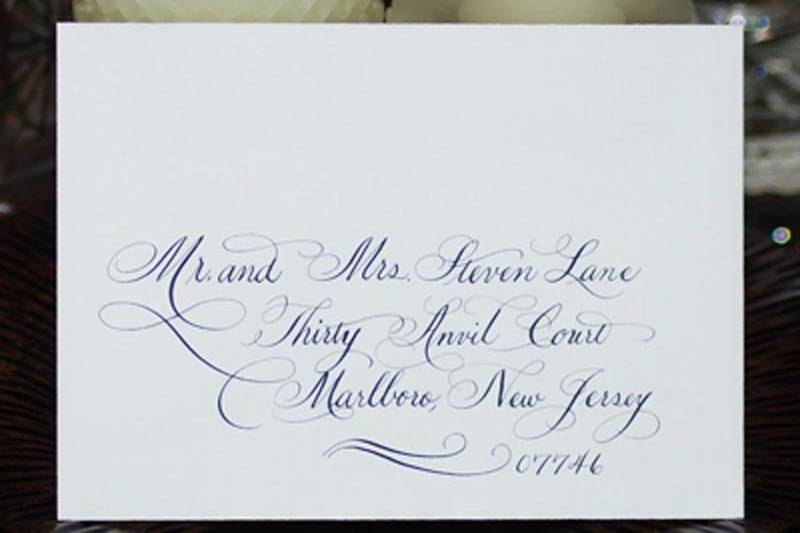 Mr. and Mrs. Steven Lane
Thirty Anvil Court
Marlboro, New Jersey
07746